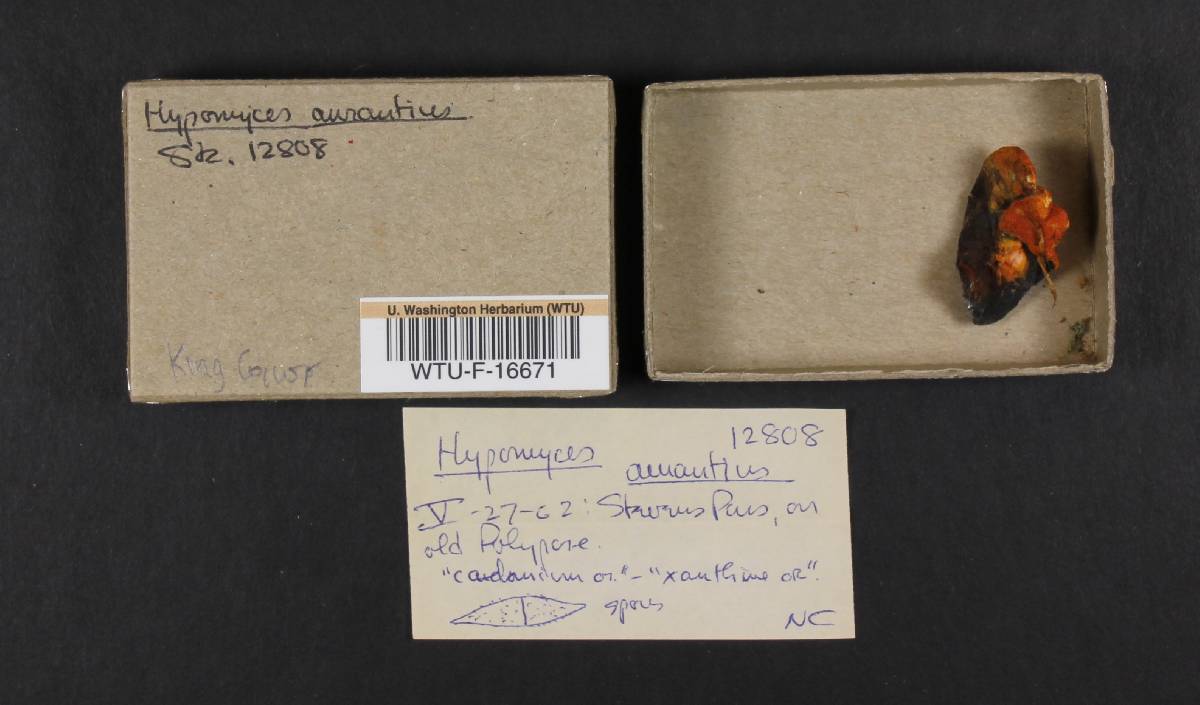 Hypomyces aurantius
Stz. 12808
King County
U. Washington Herbarium (WTU)
WTU-F-16671
12808
Hypomyces aurantius
V-27-62: Stevens Pass, on
old Polypore.
"cadmium or." - "xanthine or".
spores
NC